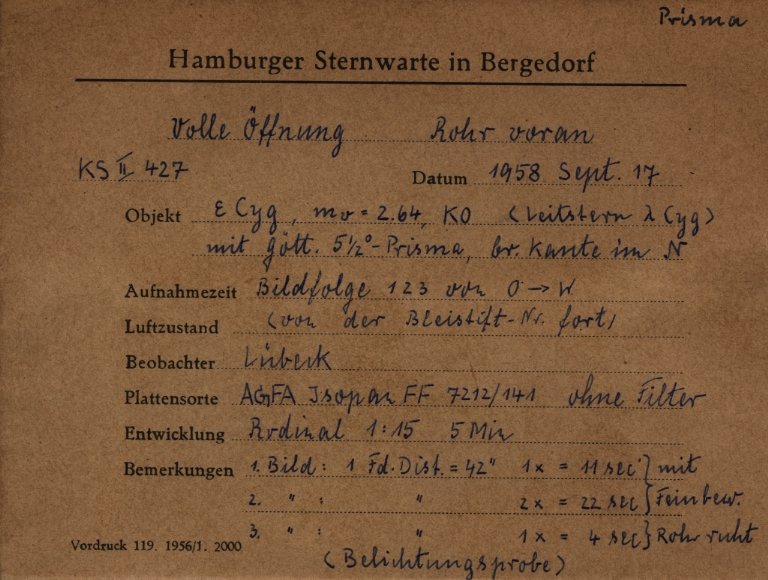 Prisma
Hamburger Sternwarte in Bergedorf
Volle Öffnung Rohr voran
KS II 427 Datum 1958 Sept. 17
Objekt ε Cyg, mv = 2.64, K0 (Leitstern λ Cyg)
mit gött. 5½°-Prisma, br. Kante im N
Aufnahmezeit Bildfolge 1 2 3 von O → W
Luftzustand (von der Bleistift-Nr. fort)
Beobachter Lübeck
Plattensorte AGFA Isopan FF 7212/141 ohne Filter
Entwicklung Rodinal 1:15 5 Min
Bemerkungen 1. Bild: 1 Fd. Dist. = 42" 1x = 11 sec } mit
2. " : " 2x = 22 sec } Feinbew.
3. " : " 1x = 4 sec } Rohr ruht
Vordruck 119. 1956/1. 2000
(Belichtungsprobe)